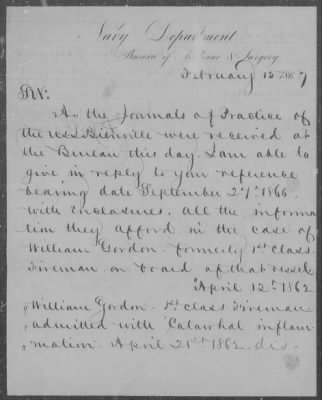 Navy Department
Bureau of Medicine & Surgery
February 15 1867
Sir:
As the Journals of Practice of
the U.S.S. Bienville were received at
the Bureau this day, I am able to
give, in reply to your reference
bearing date September 27th 1866
with enclosures, all the informa
tion they afford in the case of
William Gordon, formerly 1st class
Fireman on board of that vessel.
"April 12th 1862
"William Gordon. 1st class Fireman
"admitted with Catarrhal inflam
"mation. April 21st 1862. dis-